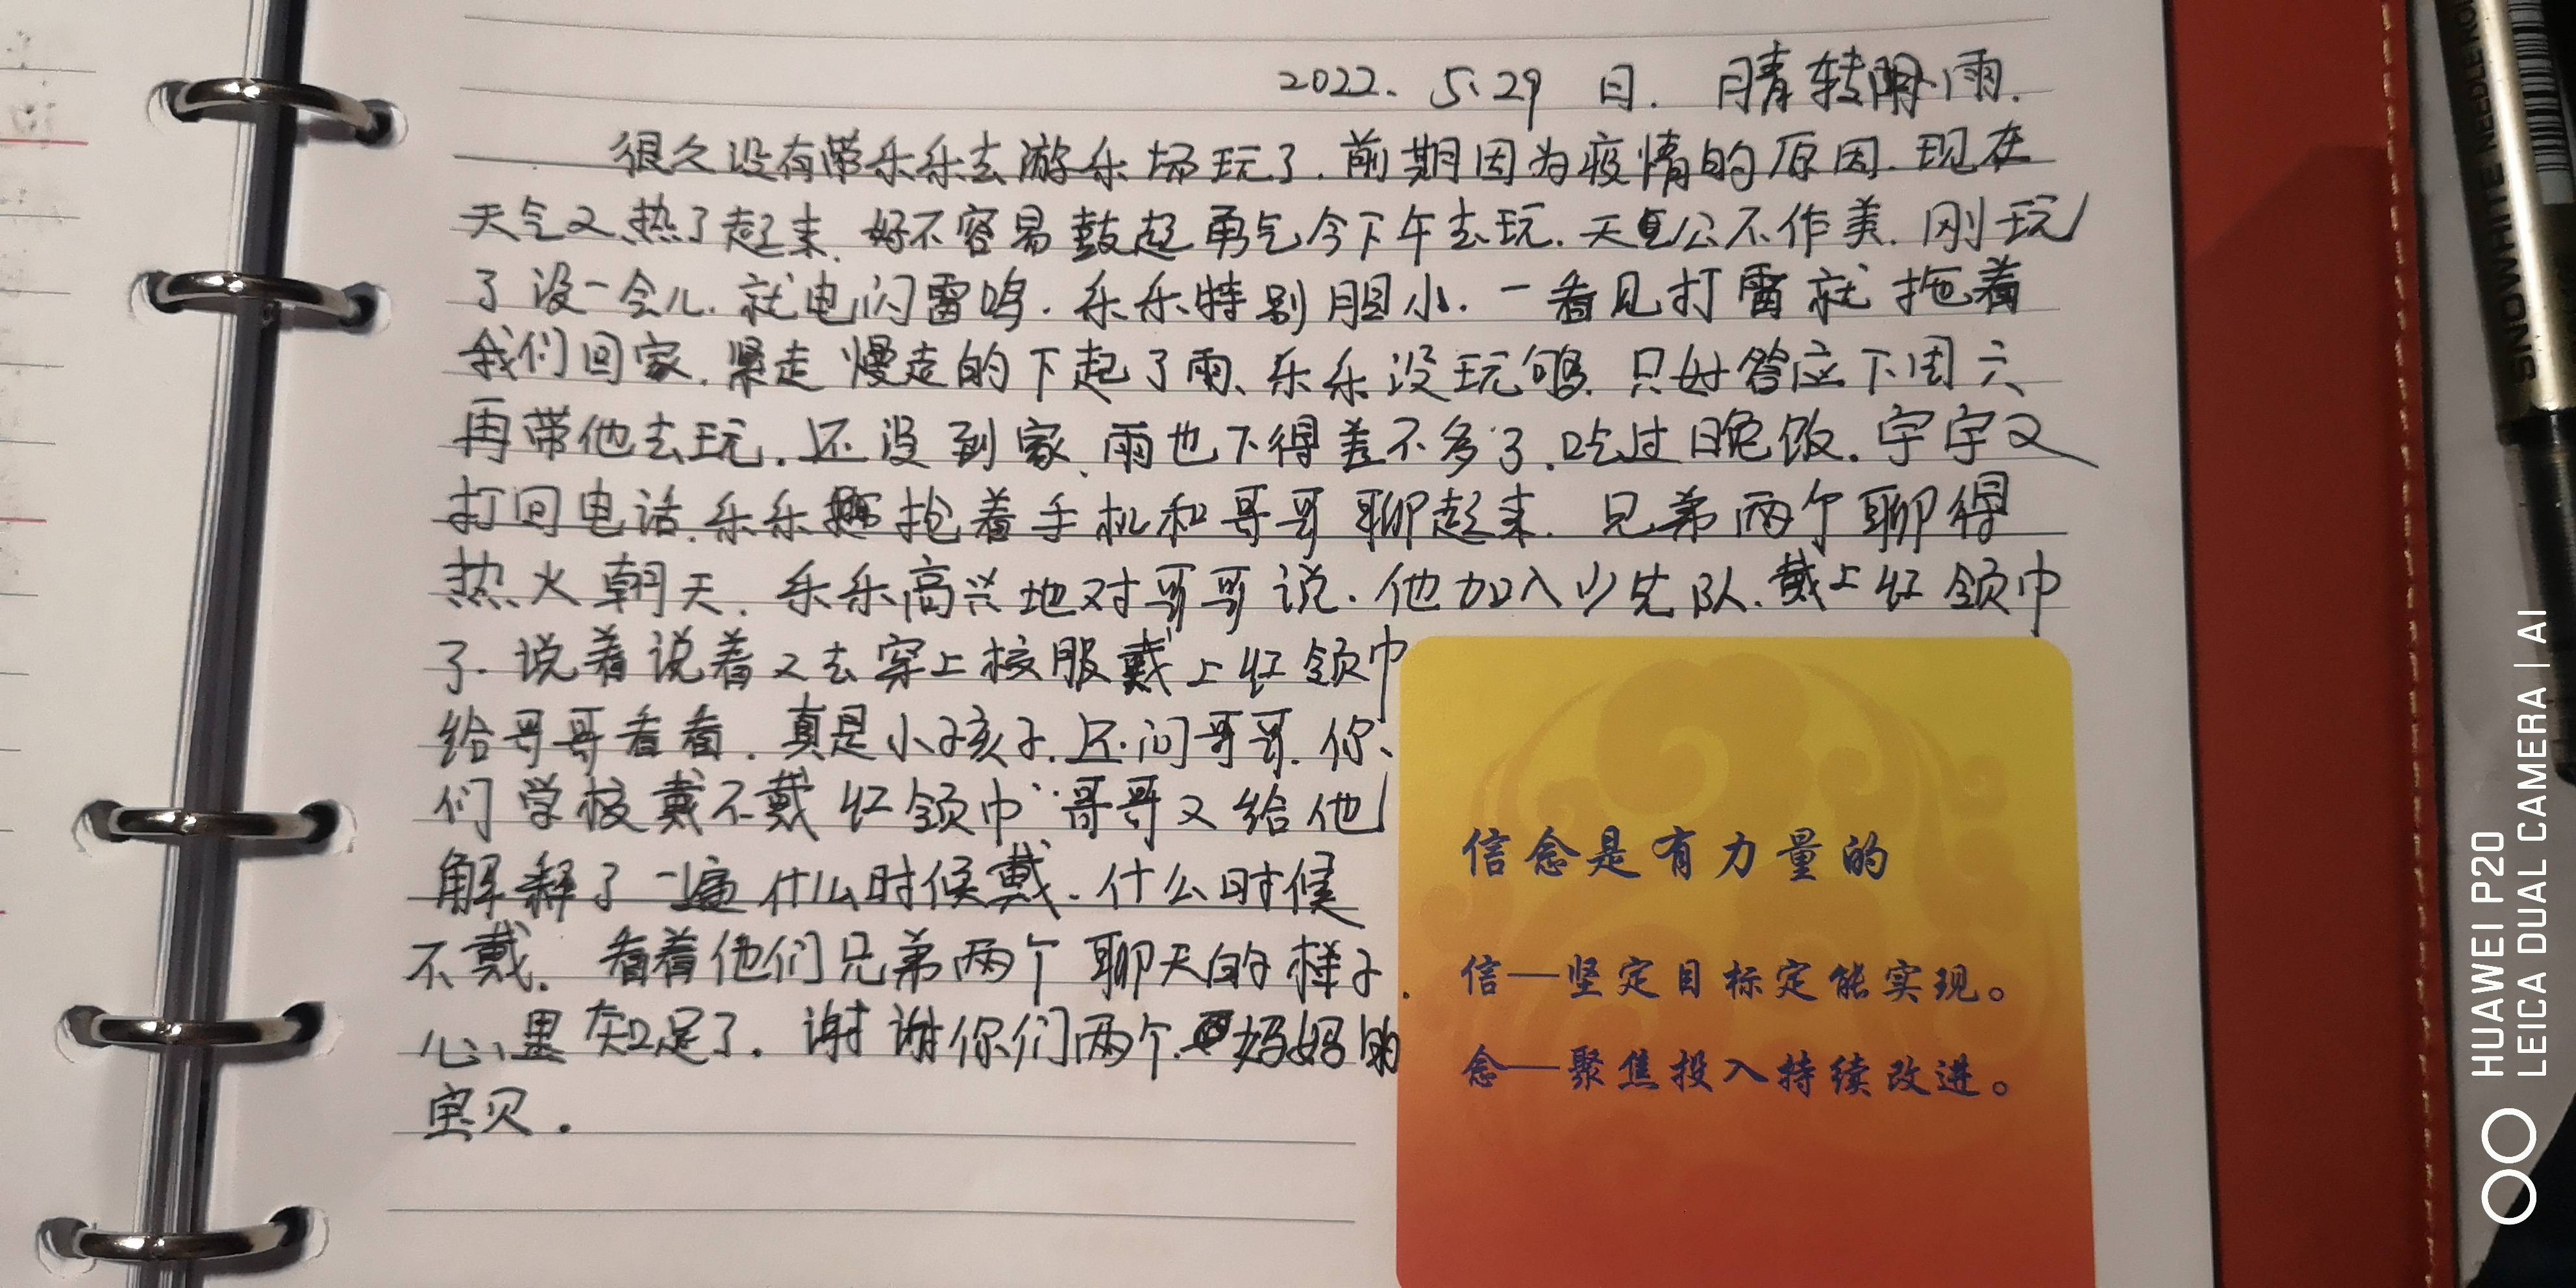 2022. 5.29 日. 晴转阴雨.
很久没有带乐乐去游乐场玩了.前期因为疫情的原因.现在
天气又热了起来.好不容易鼓起勇气今下午去玩.天公不作美.刚玩
了没一会儿.就电闪雷鸣.乐乐特别胆小.一看见打雷就拖着
我们回家.紧走慢走的下起了雨、乐乐没玩够.只好答应下周六
再带他去玩.还没到家.雨也下得差不多了.吃过晚饭.宇宇又
打回电话.乐乐抢着手机和哥哥聊起来.兄弟两个聊得
热火朝天.乐乐高兴地对哥哥说.他加入少先队.戴上红领巾
了.说着说着又去穿上校服戴上红领巾
给哥哥看看.真是小孩子.还问哥哥.你
们学校戴不戴红领巾..哥哥又给他
解释了一遍什么时候戴.什么时候
不戴.看着他们兄弟两个聊天的样子.
心里知足了.谢谢你们两个.妈妈的
宝贝.
信念是有力量的
信—坚定目标定能实现。
念—聚焦投入持续改进。
SNOWHITE NEEDLE
HUAWEI P20
LEICA DUAL CAMERA | AI